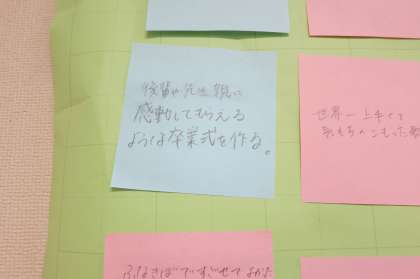 後輩や先生、親に
感動してもらえる
ような卒業式を作る。
世界一上手くて
気もちのこもった
ふなきばですごせてよかた